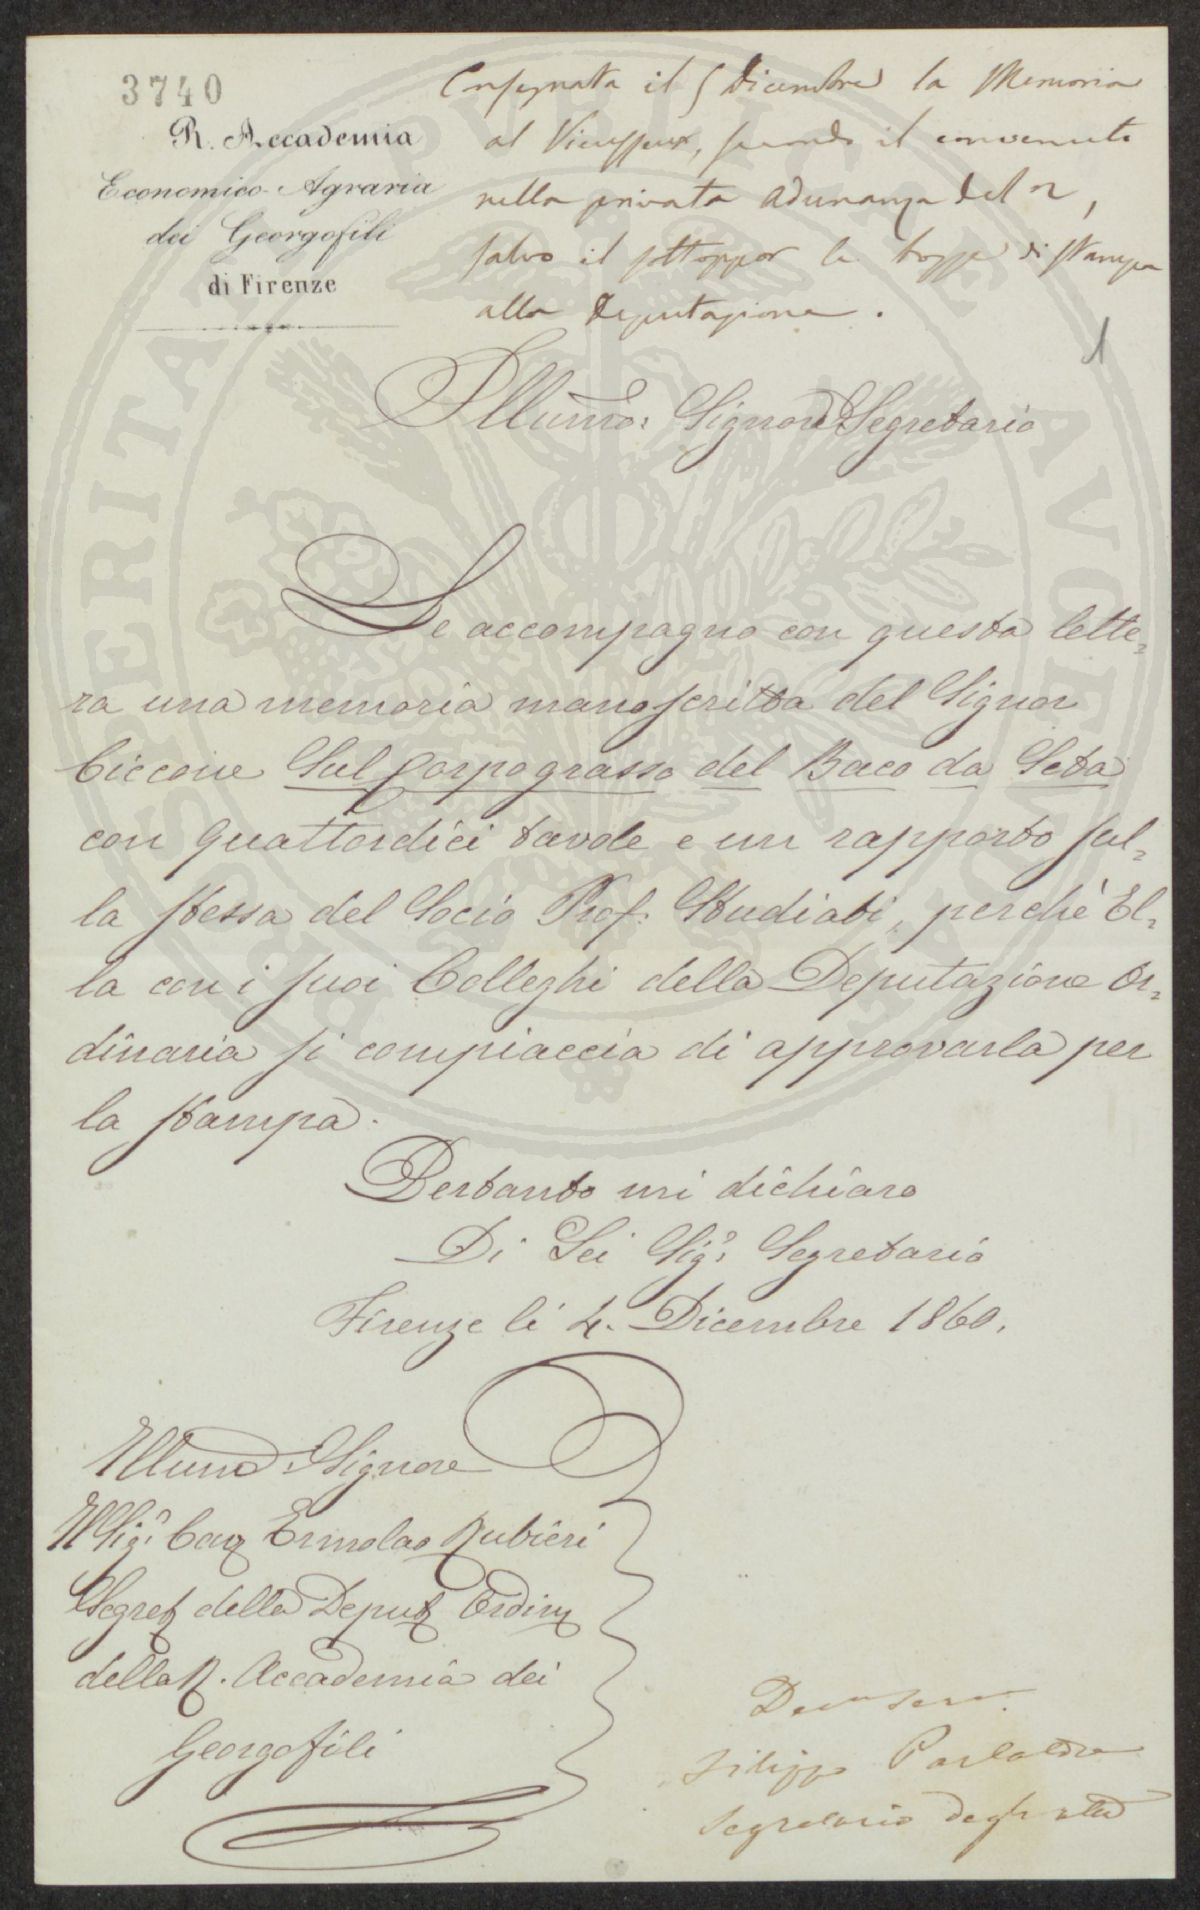 3740
R. Accademia
Economico-Agraria
dei Georgofili
di Firenze
Consegnata il 5 Dicembre la Memoria
al Vieusseux, secondo il convenuto
nella privata adunanza del 2,
salvo il sottoppor le bozze di stampa
alla Deputazione.
1
Illumo: Signore Segretario
Le accompagno con questa lette=
ra una memoria manoscritta del Signor
Ciccone Sul Corpograsso del Baco da Seta
con quattordici tavole e un rapporto sul=
la stessa del Socio Prof: Studiati, perchè El=
la con i suoi Colleghi della Deputazione Or=
dinaria si compiaccia di approvarla per
la stampa.
Pertanto mi dichiaro
Di Lei Sigr: Segretario
Firenze li 4. Dicembre 1860.
Illumo Signore
Il Sigr: Cav Ermolao Rubieri
Segret della Deput Ordin
della R. Accademia dei
Georgofili
Devmo Serv
Filippo Parlatore
Segretario degli atti
PROSPERITATI PVBLICAE AVGENDAE